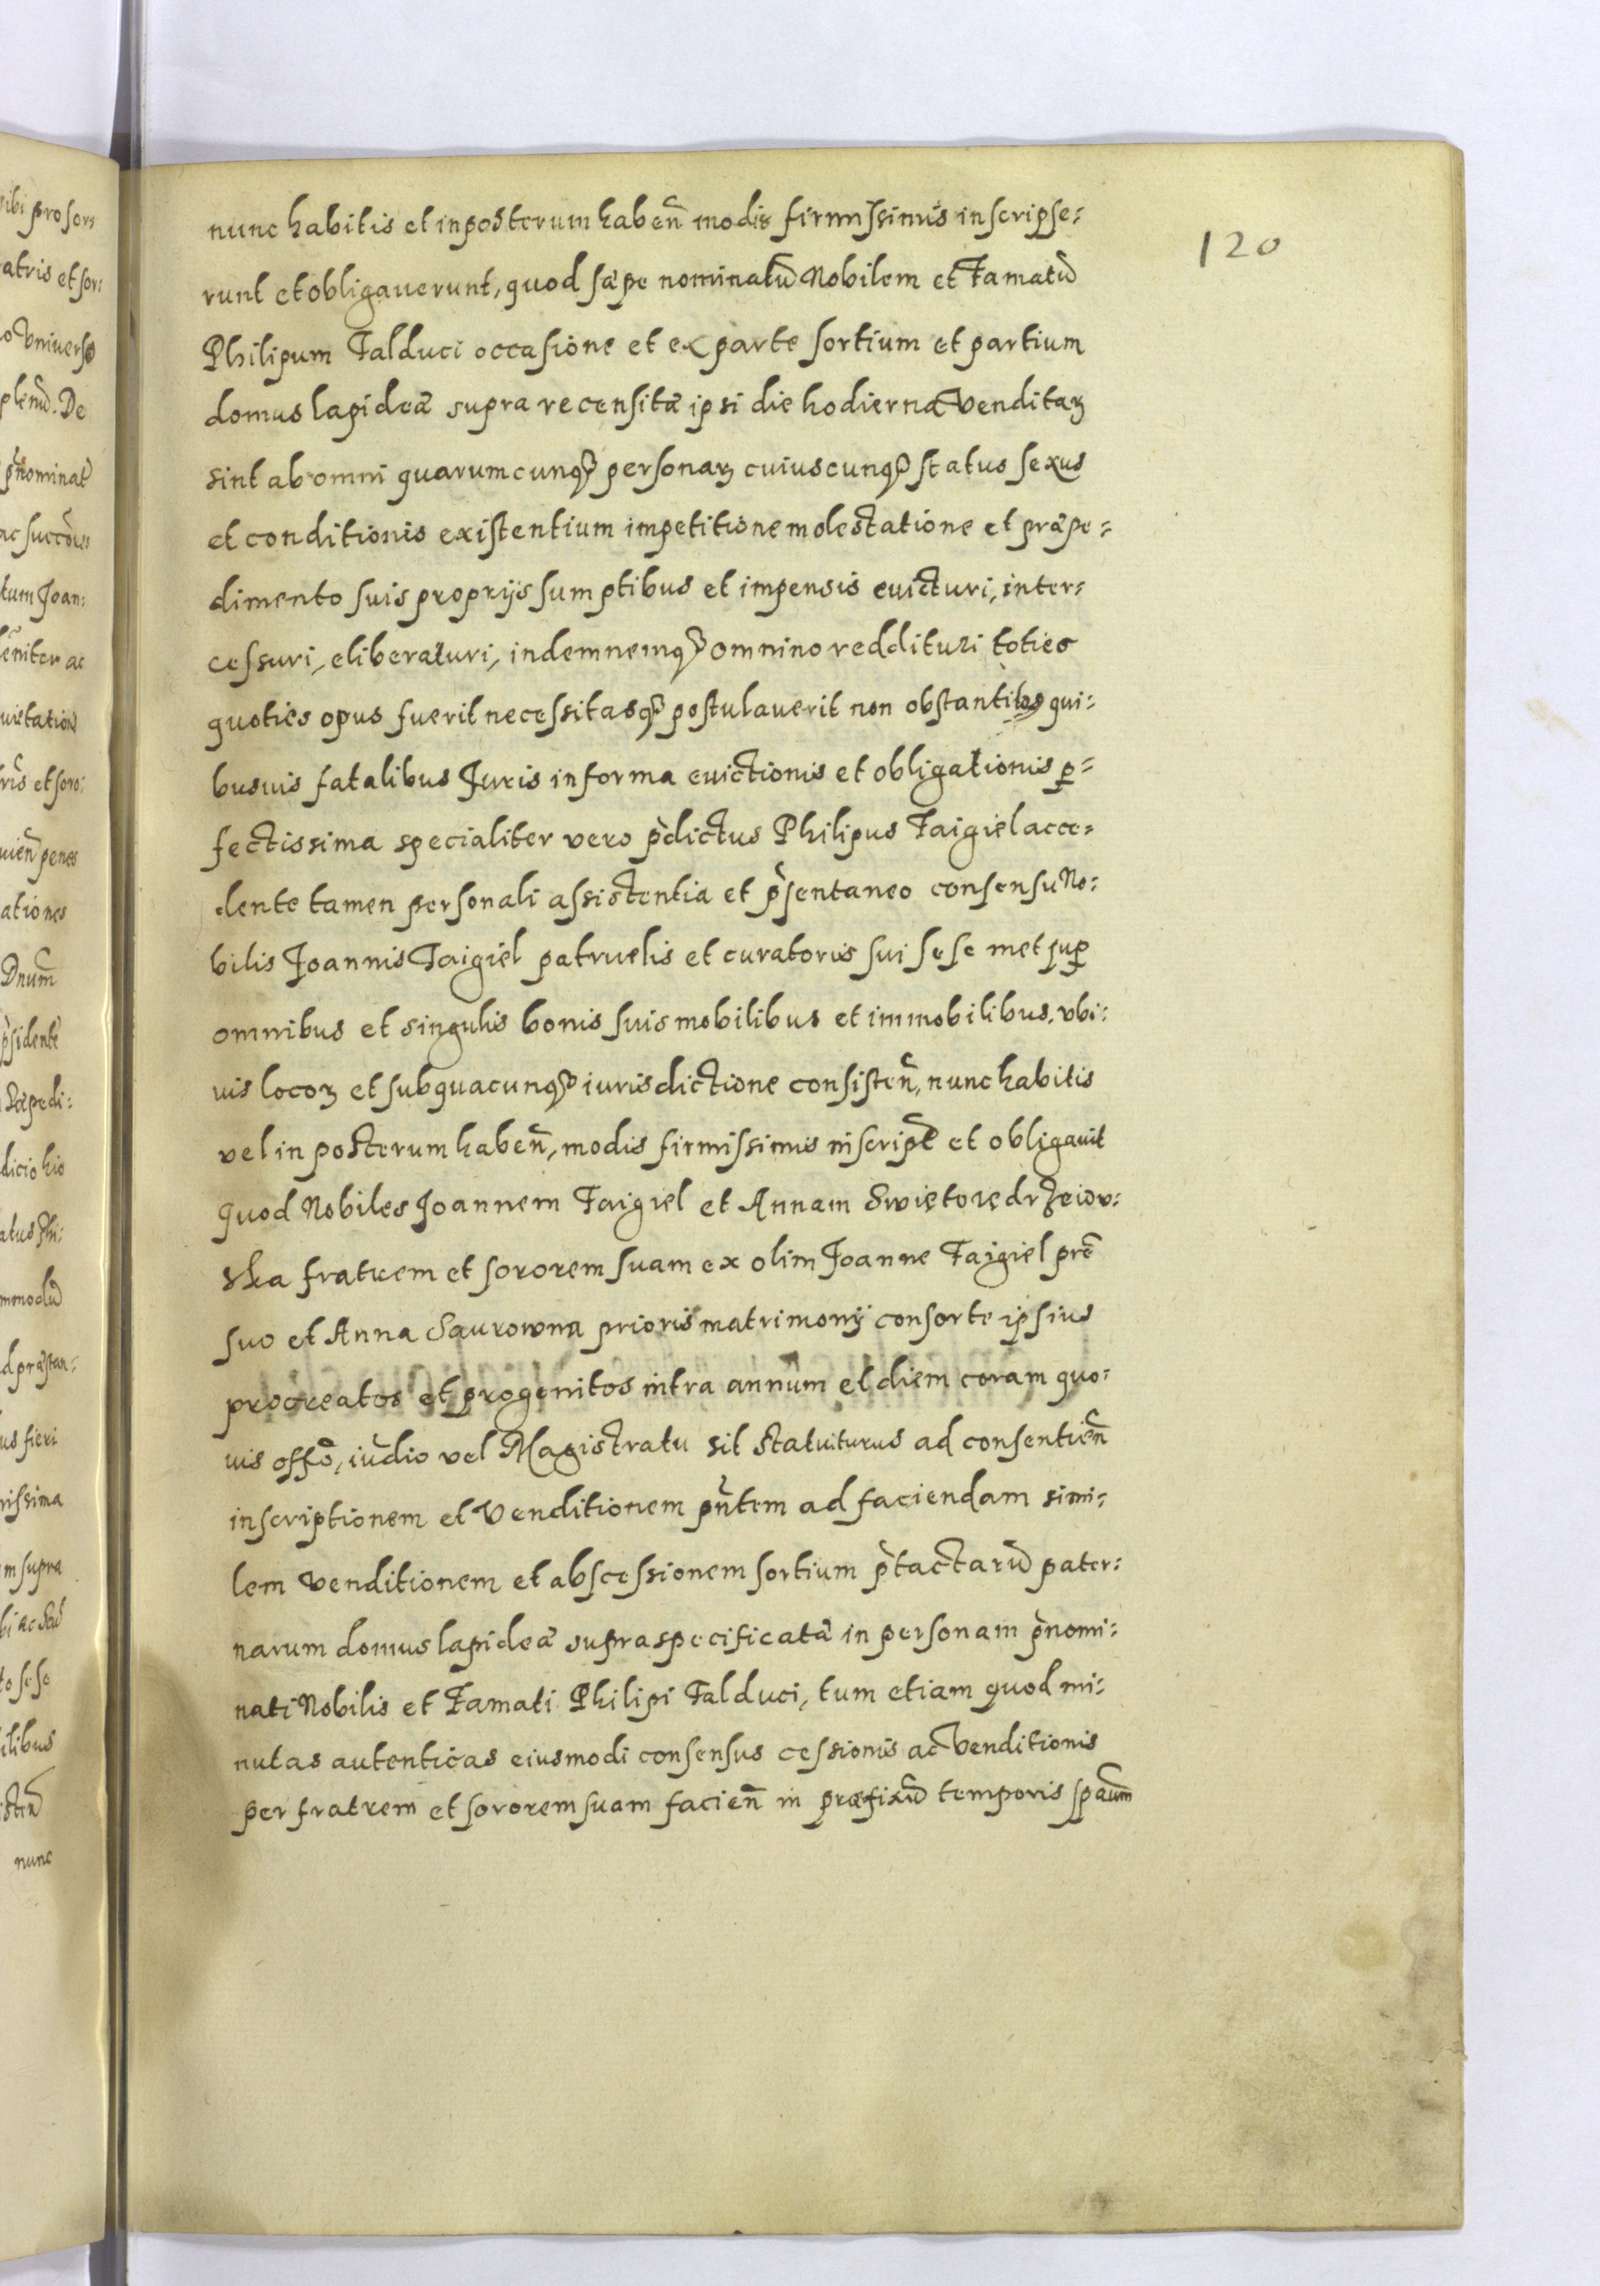 120
nunc habitis et in posterum habeñ modis firmissimis inscripse:
runt et obligauerunt, quod sæpe nominatũ Nobilem et Famatũ
Philipum Talduci occasione et ex parte sortium et partium
domus lapideæ supra recensitæ ipsi die hodierna Venditaꝝ
sint ab omni quarumcunqꝫ personaꝝ cuiuscunqꝫ status sexus
et conditionis existentium impetitione molestatione et præpe:
dimento suis proprijs sumptibus et impensis euicturi, inter:
cessuri, eliberaturi, indemnemqꝫ omnino reddituri toties
quoties opus fuerit necessitasqꝫ postulauerit non obstantibus qui:
busuis fatalibus Iuris in forma euictionis et obligationis ꝑ:
fectissima specialiter vero p̃dictus Philipus Faigiel acce:
dente tamen personali assistentia et p̃sentaneo consensu No:
bilis Joannis Faigiel patruelis et curatoris sui sese met suꝑ
omnibus et singulis bonis suis mobilibus et immobilibus, vbi:
uis locoꝝ et sub quacunqꝫ iurisdictione consisteñ, nunc habitis
vel in posterum habeñ, modis firmissimis inscript̃ et obligauit
Quod Nobiles Joannem Faigiel et Annam Swiętorędrzeiow:
ska fratrem et sororem suam ex olim Joanne Faigiel pr̃e
suo et Anna Saurowna prioris matrimonij consorte ipsius
procreatos et progenitos intra annum et diem coram quo:
uis offõ, iudio vel Magistratu sit statuiturus ad consentieñ
inscriptionem et Venditionem pñtem ad faciendam simi:
lem Venditionem et abscessionem sortium p̃tactarũ pater:
narum domus lapideæ supra specificatæ in personam p̃nomi:
nati Nobilis et Famati Philipi Talduci, tum etiam quod mi:
nutas autenticas eiusmodi consensus cessionis ac Venditionis
per fratrem et sororem suam facieñ in præfixũ temporis spaũm